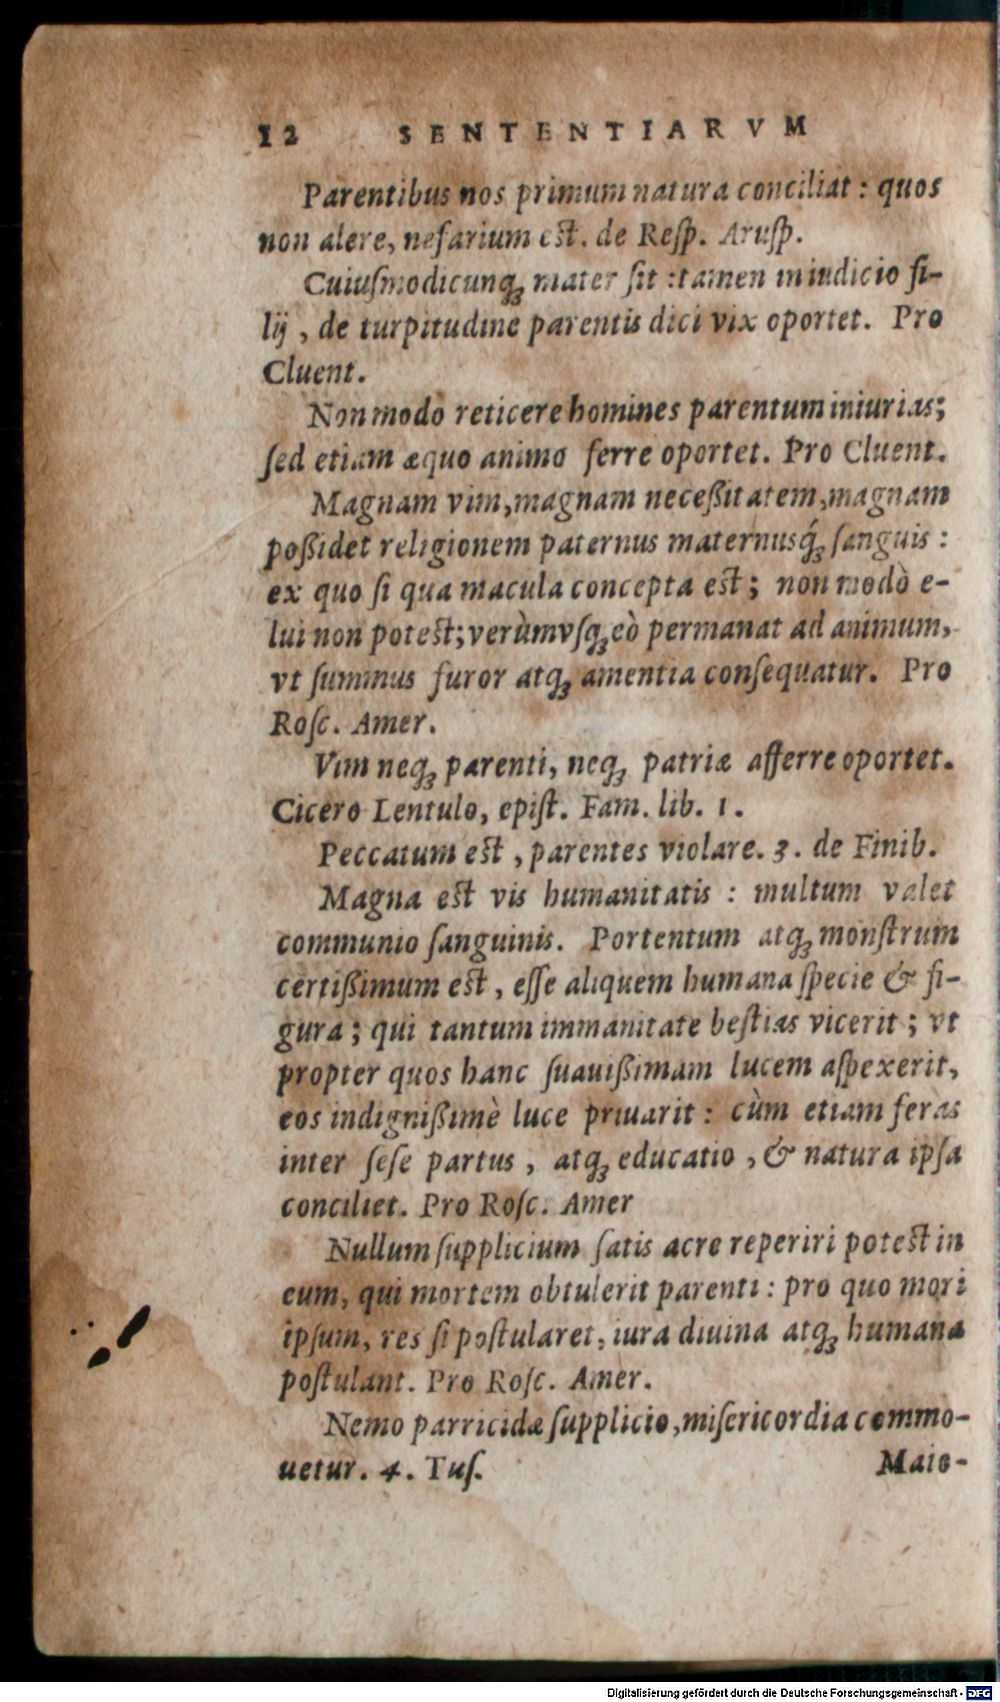 12 SENTENTIARVM
Parentibus nos primum natura conciliat : quos
non alere, nefarium est. de Resp. Arusp.
Cuiuſmodicunq; mater ſit : tamen in iudicio fi-
lij , de turpitudine parentis dici vix oportet. Pro
Cluent.
Non modò reticere homines parentum iniurias;
ſed etiam æquo animo ferre oportet. Pro Cluent.
Magnam vim, magnam neceßitatem, magnam
poßidet religionem paternus maternusq́; ſanguis :
ex quo ſi qua macula concepta est ; non modò e-
lui non potest; verùm vſq; eò permanat ad animum,
vt ſummus furor atq; amentia conſequatur. Pro
Roſc. Amer.
Vim neq; parenti, neq; patriæ afferre oportet.
Cicero Lentulo, epiſt. Fam. lib. 1.
Peccatum est , parentes violare. 3. de Finib.
Magna est vis humanitatis : multum valet
communio ſanguinis. Portentum atq; monſtrum
certißimum est , eſſe aliquem humana ſpecie & fi-
gura ; qui tantum immanitate beſtias vicerit ; vt
propter quos hanc ſuauißimam lucem aſpexerit,
eos indignißimè luce priuarit : cùm etiam feras
inter ſeſe partus , atq; educatio , & natura ipſa
conciliet. Pro Roſc. Amer
Nullum ſupplicium ſatis acre reperiri potest in
eum, qui mortem obtulerit parenti : pro quo mori
ipſum, res ſi poſtularet, iura diuina atq; humana
poſtulant. Pro Roſc. Amer.
Nemo parricidæ ſupplicio, miſericordia commo-
uetur. 4. Tuſ.
Maio-
Digitalisierung gefördert durch die Deutsche Forschungsgemeinschaft - DFG